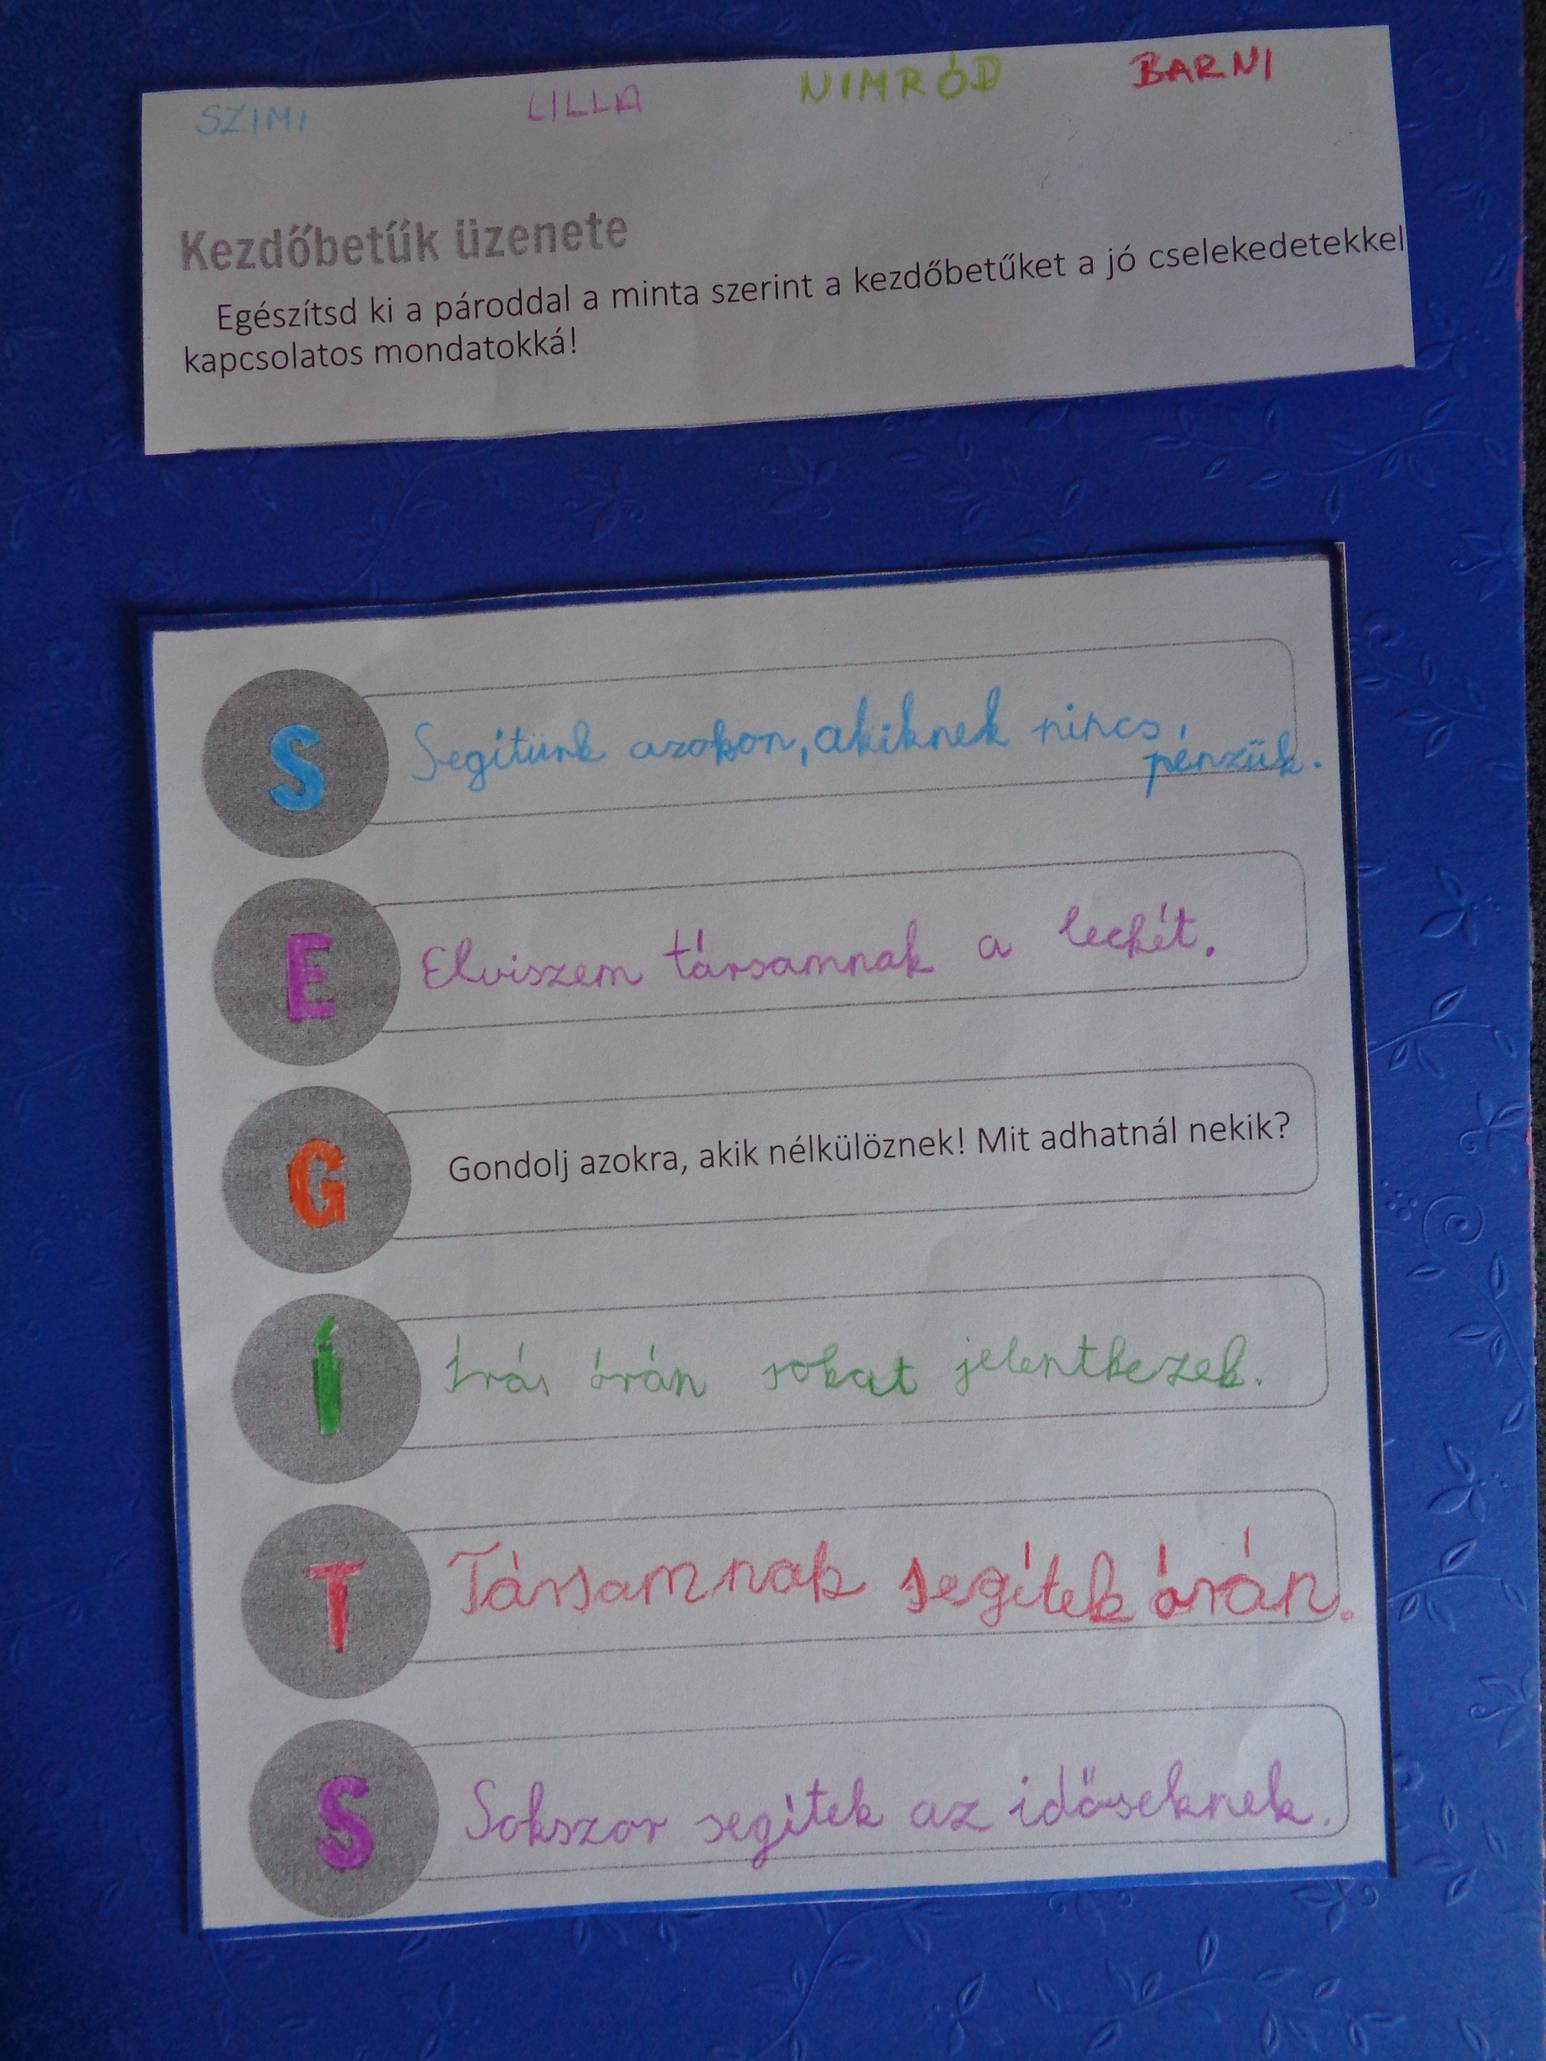 SZIMI LILLA NIMRÓD BARNI
Kezdőbetűk üzenete
Egészítsd ki aároddal a minta szerint a kezdőbetűket a jó cselekedetekkel
kapcsolatos mondatokká!
S Segítünk azokon, akiknek nincs
pénzük.
E Elviszem társamnak a leckét.
G Gondolj azokra, akik nélkülöznek! Mit adhatnál nekik?
Í Írás órán sokat jelentkezek.
T Társamnak segítek órán.
S Sokszor segítek az időseknek.